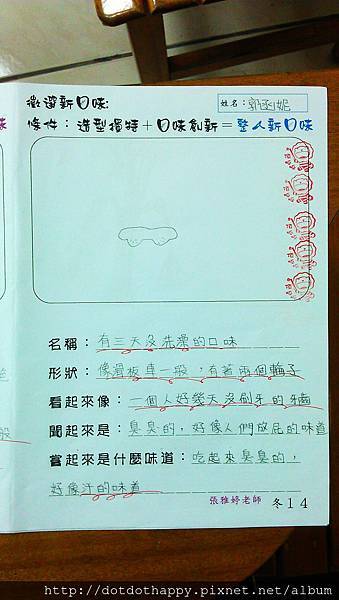 徵選新口味:
姓名：郭函妮
條件：造型獨特＋口味創新＝整人新口味
名稱：有三天沒洗澡的口味
形狀：像滑板車一般，有著兩個輪子
看起來像：一個人好幾天沒刷牙的牙齒
聞起來是：臭臭的，好像人們放屁的味道
嘗起來是什麼味道：吃起來臭臭的，
好像汗的味道
張雅婷老師 冬14
http://dotdothappy.pixnet.net/album